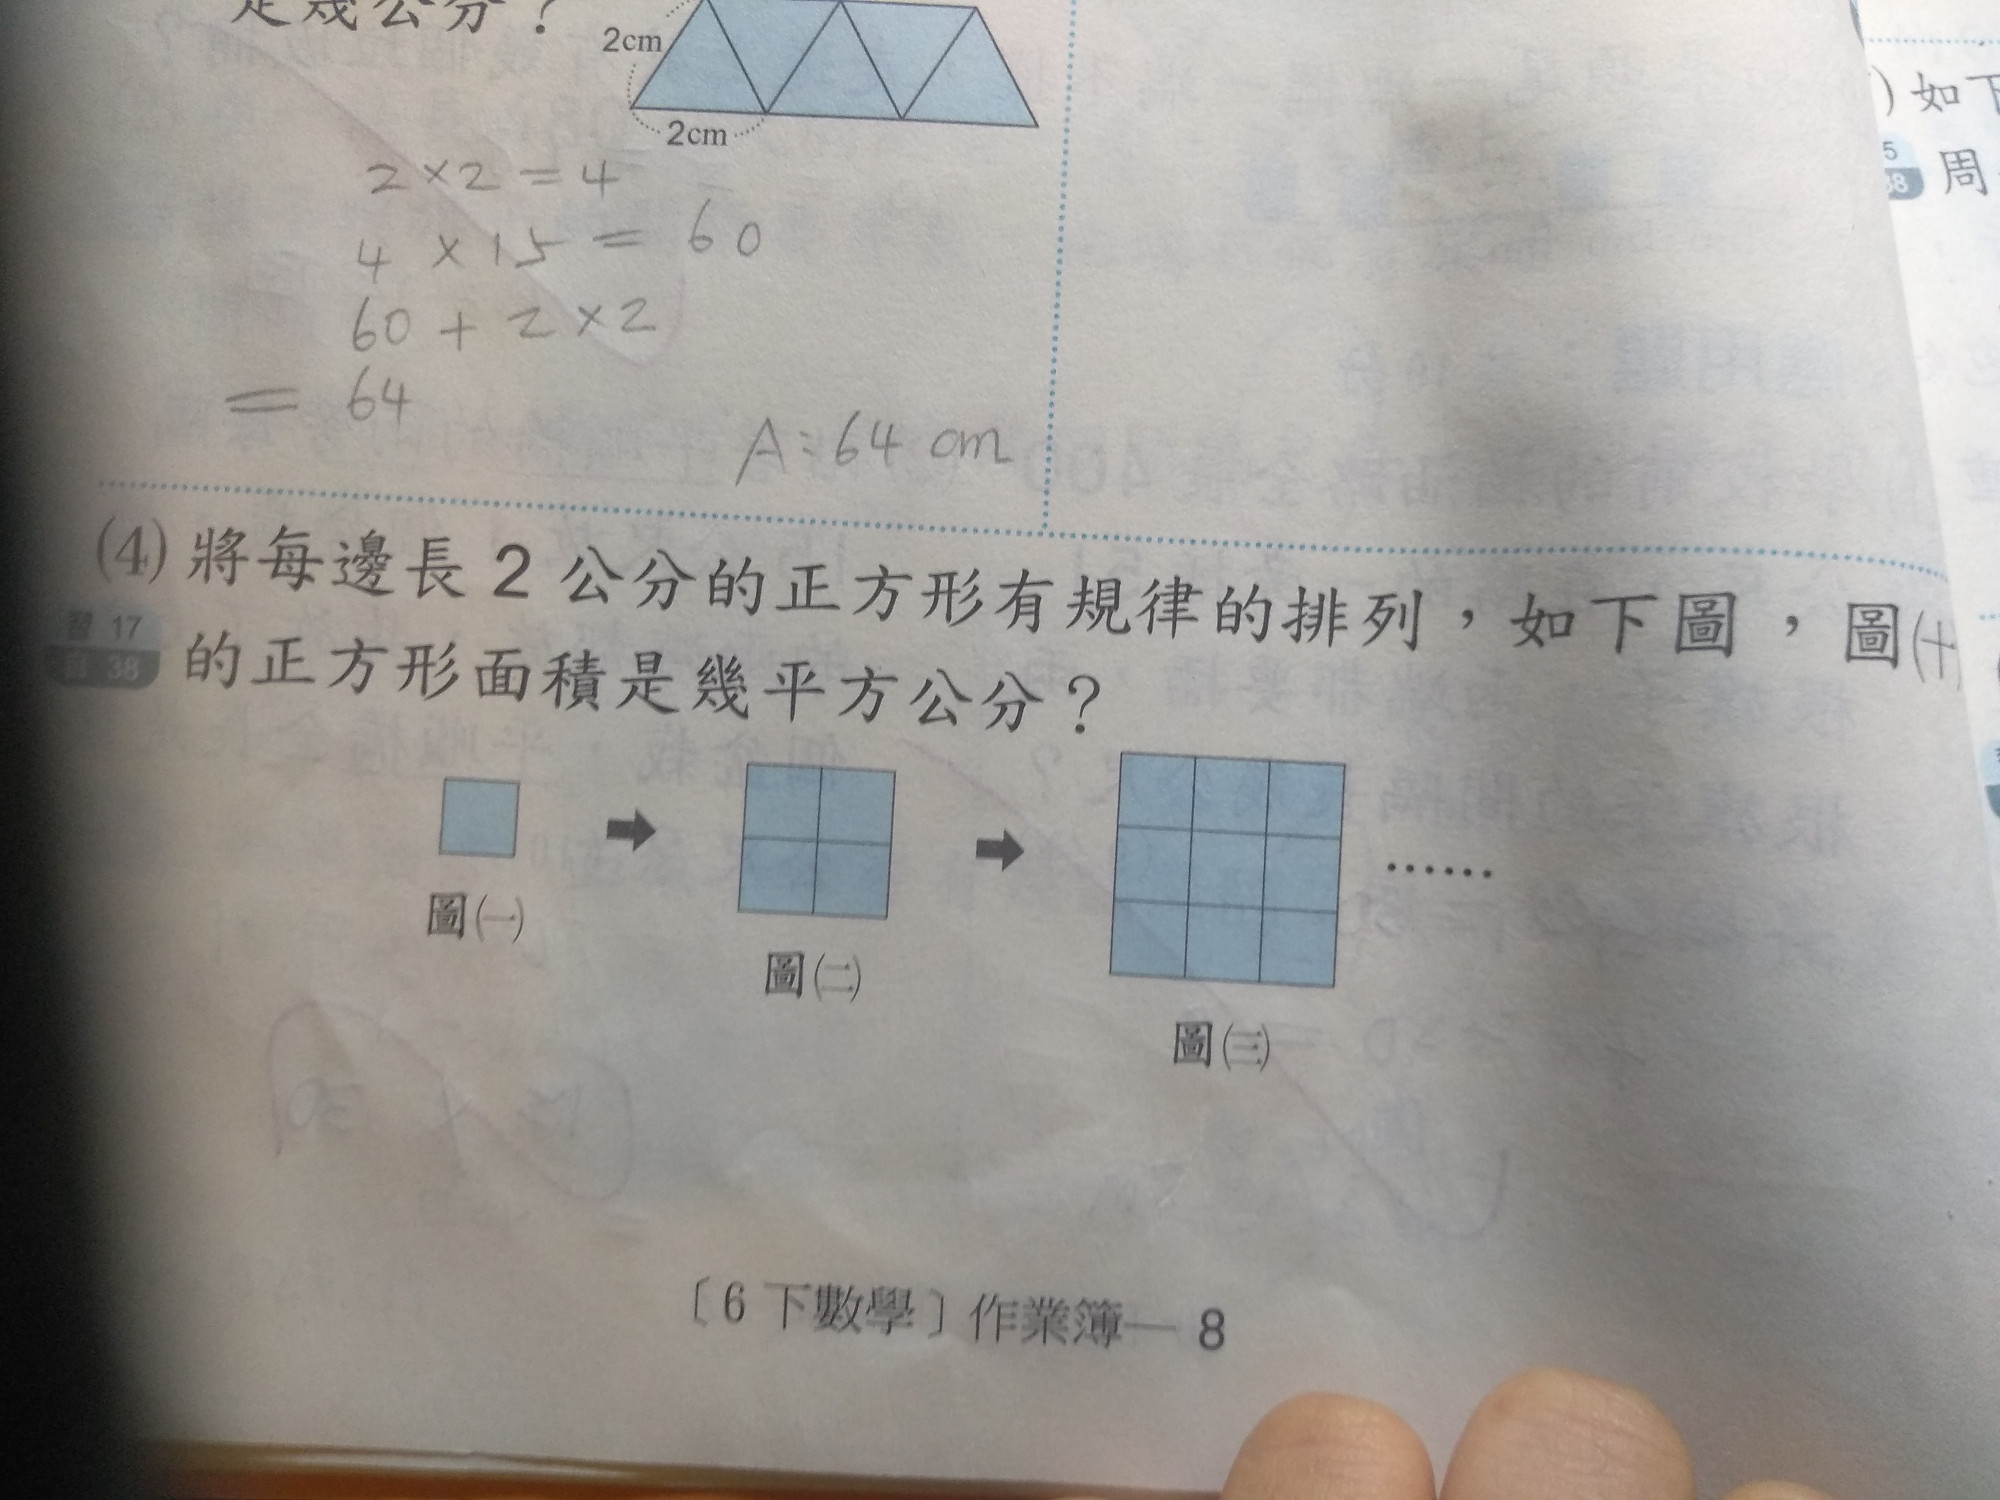 是幾公分？
2cm
2cm
2×2=4
4×15=60
60+2×2
=64
A:64 cm
(4)將每邊長2公分的正方形有規律的排列，如下圖，圖(十
習 17
38
的正方形面積是幾平方公分？
……
圖(一)
圖(二)
圖(三)
〔6下數學〕作業簿—8
)如下
5
38
周